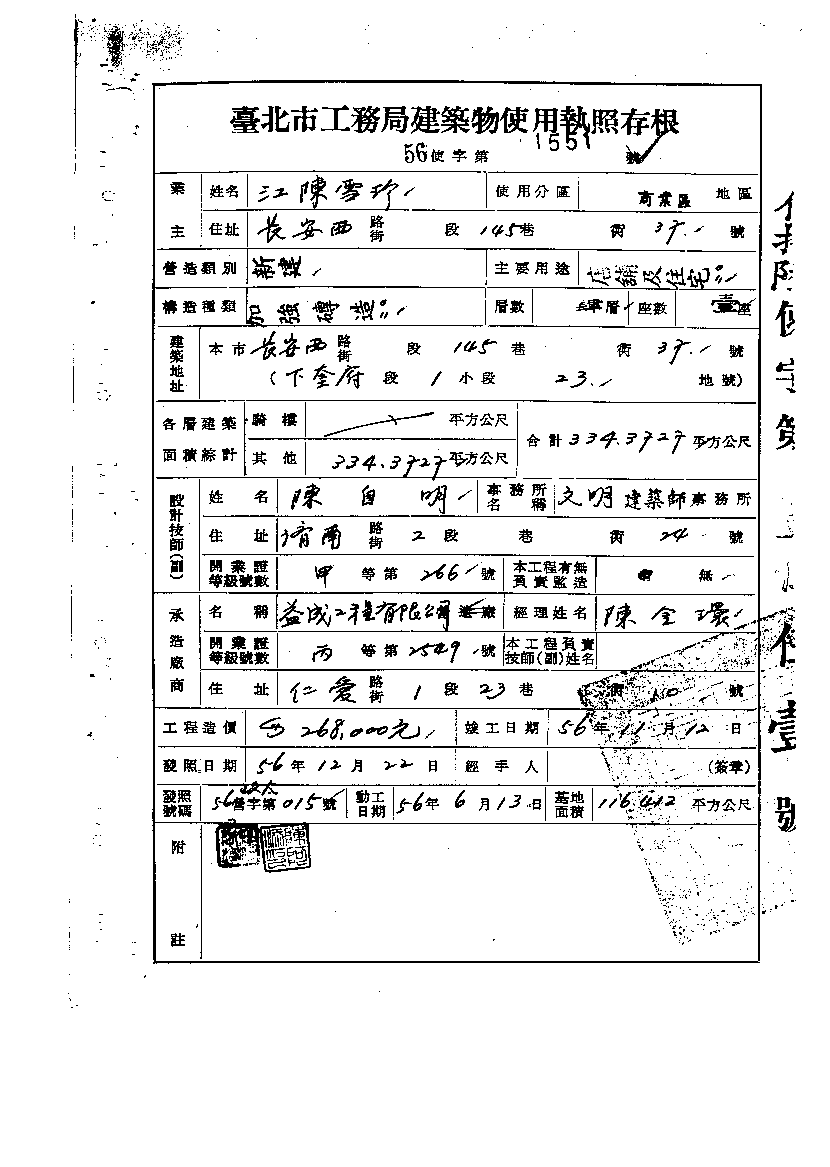 臺北市工務局建築物使用執照存根
56使字第 1551 號
業主 姓名 江陳雪珍 使用分區 商業區 地區
住址 長安西 路街 段 145巷 街 37 號
營造類別 新建 主要用途 店舖及住宅
構造種類 加強磚造 層數 層 座數 壹座
建築地址 本市 長安西 路街 段 145 巷 街 37 號
(下奎府 段 1 小段 23 地號)
各層建築面積綜計 騎樓 平方公尺 合計 334.3727 平方公尺
其他 334.3727 平方公尺
設計技師(副) 姓名 陳自明 事務所名稱 文明建築師事務所
住址 濟南 路街 2段 巷 街 24 號
開業證等級號數 甲 等第 266 號 本工程有無負責監造 無
承造廠商 名稱 益成工程有限公司 經理姓名 陳全環
開業證等級號數 丙 等第 2549 號 本工程負責技師(副)姓名
住址 仁愛 路街 1 段 23 巷 街 號
工程造價 268,000元 竣工日期 56年 11月 12日
發照日期 56年 12月 22日 經手人 (簽章)
發照號碼 56營字第 015 號 動工日期 56年 6月 13日 基地面積 116.412 平方公尺
附註